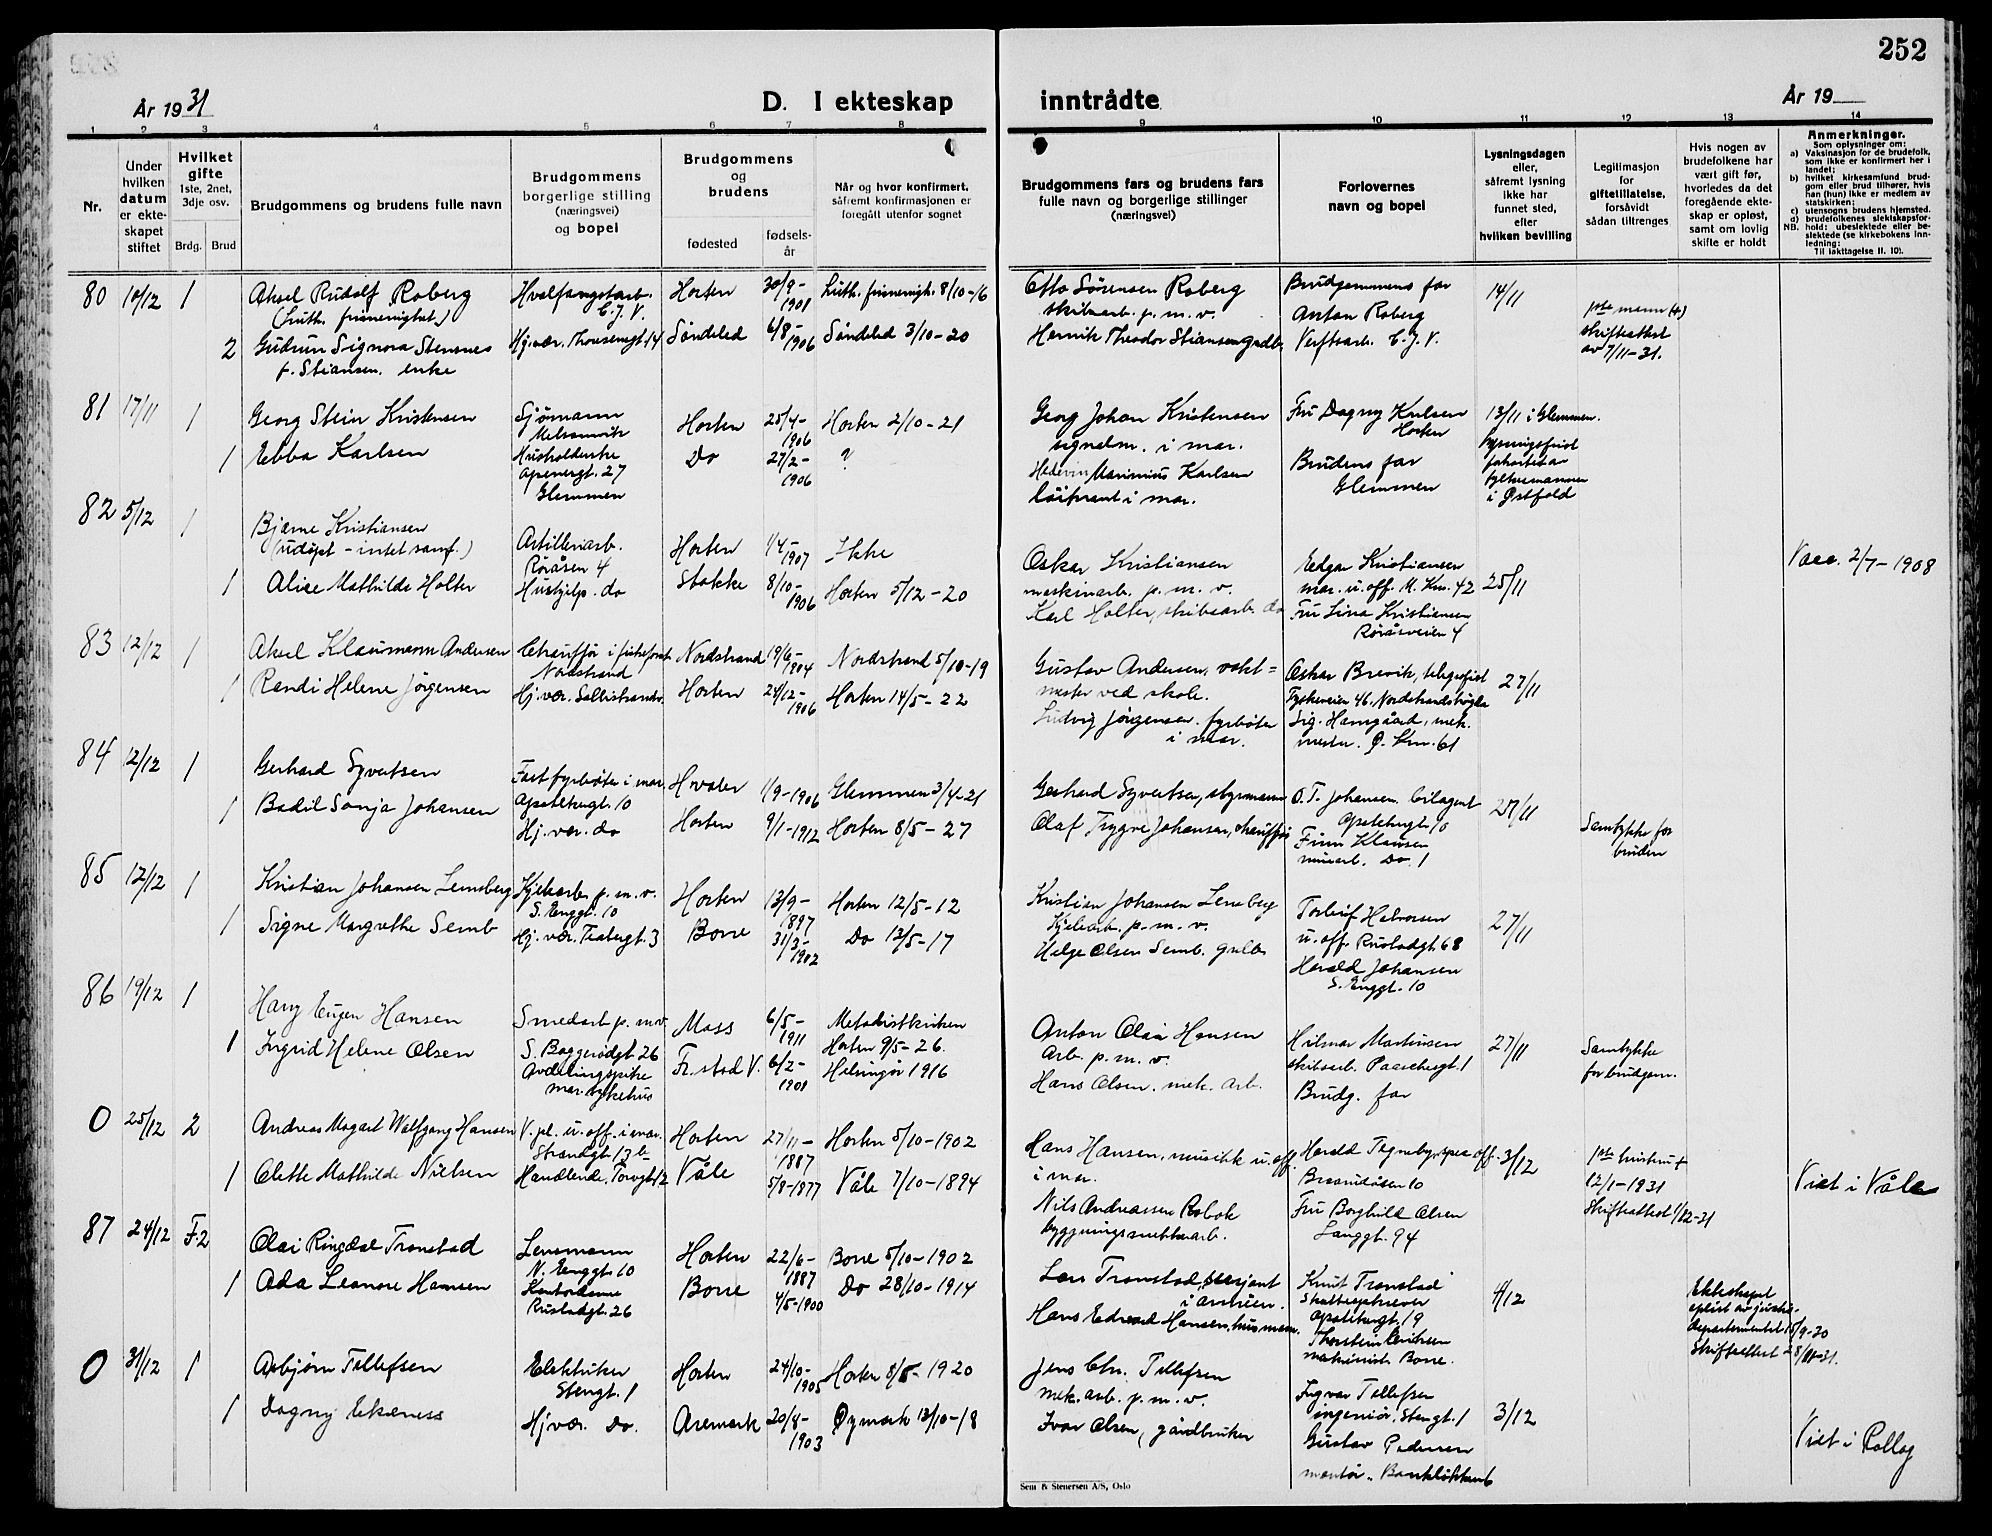 252
År 1931
D. I ekteskap
inntrådte
År 19
1 2 3 4 5 6 7 8 9 10 11 12 13 14
Nr.
Under hvilken datum er ekteskapet stiftet
Hvilket gifte
1ste, 2net, 3dje osv.
Brdg. Brud
Brudgommens og brudens fulle navn
Brudgommens borgerlige stilling (næringsvei) og bopel
Brudgommens og brudens
fødested
fødselsår
Når og hvor konfirmert, såfremt konfirmasjonen er foregått utenfor sognet
Brudgommens fars og brudens fars fulle navn og borgerlige stillinger (næringsvei)
Forlovernes navn og bopel
Lysningsdagen eller, såfremt lysning ikke har funnet sted, efter hvilken bevilling
Legitimasjon for giftetillatelse, forsåvidt sådan tiltrenges
Hvis nogen av brudefolkene har vært gift før, hvorledes da det foregående ekteskap er opløst, samt om lovlig skifte er holdt
Anmerkninger.
Som oplysninger om:
a) Vaksinasjon for de brudefolk, som ikke er konfirmert her i landet;
b) hvilket kirkesamfund brudgom eller brud tilhører, hvis han (hun) ikke er medlem av statskirken;
c) utensogns brudens hjemsted.
d) brudefolkenes slektskapsforhold: ubeslektede eller beslektede (se kirkebokens innledning:
NB. Til iakttagelse II. 10).
80 10/12 1 Aksel Rudolf Roberg Hvalfangstarb. Horten 30/9-1901 Luth. frimenigh. 8/10-16 Otto Sörensen Roberg Brudgommens far 14/11
(Luth. frimenighet) C.J.V. skibsarb. p.m.v. Anton Roberg 1ste mann (+)
2 Gudrun Signora Stensnes Hj. vær. Thronsengt 14 Söndeled 6/8-1906 Söndeled 3/10-20 Henrik Theodor Stiansen gndbr. Verftsarb. C.J.V. skifteattest
f. Stiansen. enke av 7/11-31.
81 17/11 1 Georg Stein Kristensen Sjömann Horten 25/4-1906 Horten 2/10-21 Georg Johan Kristensen Fru Dagny Karlsen 13/11 i Glemmen.
signalm. i mar. Horten
1 Ebba Karlsen Husholderske Do 27/2-1906 ? Marinius Karlsen Brudens far
Apenesgt. 27 Glemmen löitnant i mar. Glemmen i Østfold
82 5/12 1 Bjarne Kristiansen Artilleriarb. Horten 1/4-1907 Ikke Oskar Kristiansen Edgar Kristiansen
(udöpt - intet samf.) Röråsen 4 maskinarb. p.m.v. mar. u.off. M. Km. 42 25/11 Vacc. 2/7-1908
1 Alice Mathilde Holter Hushjelp. do Stokke 8/10-1906 Horten 5/12-20 Karl Holter, skibsarb. do Fru Lina Kristiansen
Röråsveien 4
83 12/12 1 Aksel Klausmann Andersen Chauffør Nordstrand 19/6-1904 Nordstrand 5/10-19 Gustav Andersen, vakt= Oskar Brevik, telegrafist 27/11
Nordstrand mester ved skole. 46, Nordstrandshögda
1 Randi Helene Jörgensen Hj. vær. Horten 24/12-1906 Horten 14/5-22 Ludvig Jörgensen. fyrböter Sig. Hamgård, mek.
i mar. mester. Ø. Km. 61
84 12/12 1 Gerhard Syvertsen Fast fyrböter i mar. Hvaler 1/9-1906 Glemmen 3/4-21 Gerhard Syvertsen, styrmann O. T. Johansen bilagent 27/11
Apotekergt. 10 Apotekergt. 10
1 Bodil Sonja Johansen Hj. vær. do Horten 9/1-1912 Horten 8/5-27 Olaf Trygve Johansen, chauffør Finn Klausen Samtykke for
minearb. Do. 1 bruden
85 12/12 1 Kristian Johansen Lensberg Kjelearb. p.m.v. Horten 13/9-1897 Horten 12/5-12 Kristian Johansen Lensberg Torleif Halvorsen 27/11
S. Enggt. 10 Kjelearb. p.m.v. u.off. Rustadgt. 68
1 Signe Margrethe Semb Hj. vær. Teatergt. 3 Borre 31/3-1902 Do 13/5-17 Helge Olsen Semb. gndb. Harald Johansen
S. Enggt. 10
86 19/12 1 Harry Eugen Hansen Smedarb. p.m.v. Moss 6/5-1911 Metodistkirken Anton Olai Hansen Hilmar Martinsen 27/11 Samtykke
S. Baggerödgt 26 Horten 9/5-26. Arb. p.m.v. skibsarb. Paaschesgt. 1 for brudgom.
1 Ingrid Helene Olsen Avdelingspike Fr.stad V. 6/2-1901 Helsingör 1916 Hans Olsen. mek. arb. Brudg. far
mar. sykehus
0 25/12 2 Andreas Mozart Wolfgang Hansen V. pl. u.off. i mar. Horten 27/11-1887 Horten 5/10-1902 Hans Hansen, musikk u.off. Harald Tegneby, 3/12 1ste hustru +
Strandgt. 13 b i mar. 10 12/1-1931
1 Olette Mathilde Nielsen Handlende, Torvgt. 2 Våle 5/8-1877 Våle 7/10-1894 Nils Andreassen Rabok Fru Borghild Olsen Skifteattest 1/12-31 Viet i Våle
byggningssnekkerarb. Langgt. 94
87 24/12 F.2 Olai Ringdal Tronstad Lensmann Horten 22/6-1887 Borre 5/10-1902 Lars Tronstad, sersjant Knut Tronstad 4/12 Ekteskapet
N. Enggt. 10 i arméen. Skatteopkrever opløst av justisdepartementet 15/9-20
1 Ada Leonore Hansen Kontordame Borre 4/5-1900 Do 28/10-1914 Hans Edvard Hansen, husmann. Apotekergt. 19 Skifteattest 28/11-31.
Rustadgt. 26 Thorstein Eriksen
maskinist. Borre.
0 31/12 1 Asbjørn Tellefsen Elektriker Horten 24/10-1905 Horten 8/5-1920 Jens Chr. Tellefsen Ingvar Tellefsen
Stengt. 1 mek. arb. p.m.v. ingeniör. Stengt. 1 3/12
1 Dagny Ekeness Hj. vær. Do. Aremark 20/8-1903 Øymark 13/10-18 Ivar Olsen, gårdbruker Gustav Pedersen Viet i Rollag
montör.
Sem & Stenersen A/S, Oslo